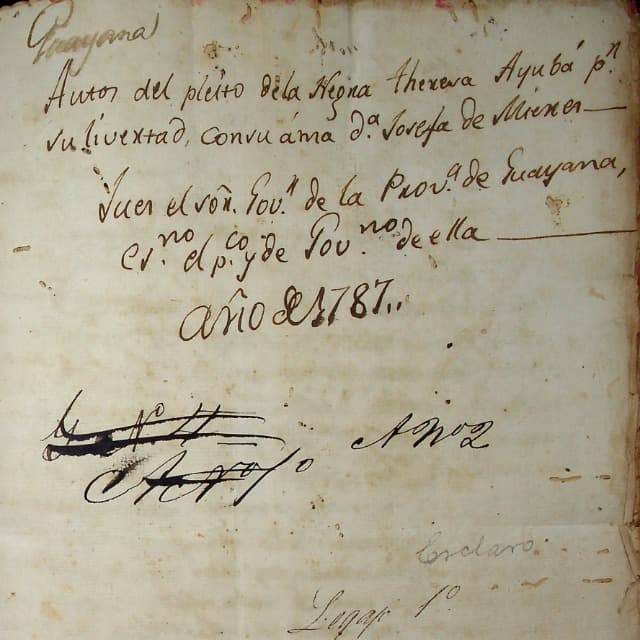 Guayana
Autos del pleito dela Negra theresa Ayubá p.r
su livertad, consu áma d.a Josefa de Mieres
Jues el señ.r Gov.r de la Prov.a de Guayana,
es.no el p.co y de Gov.no de ella
año de 1787..
A Nº 2
A Nº 1º
Esclavo
Legajº 1º